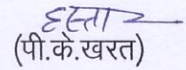 हस्ता
(पी.के.खरत)